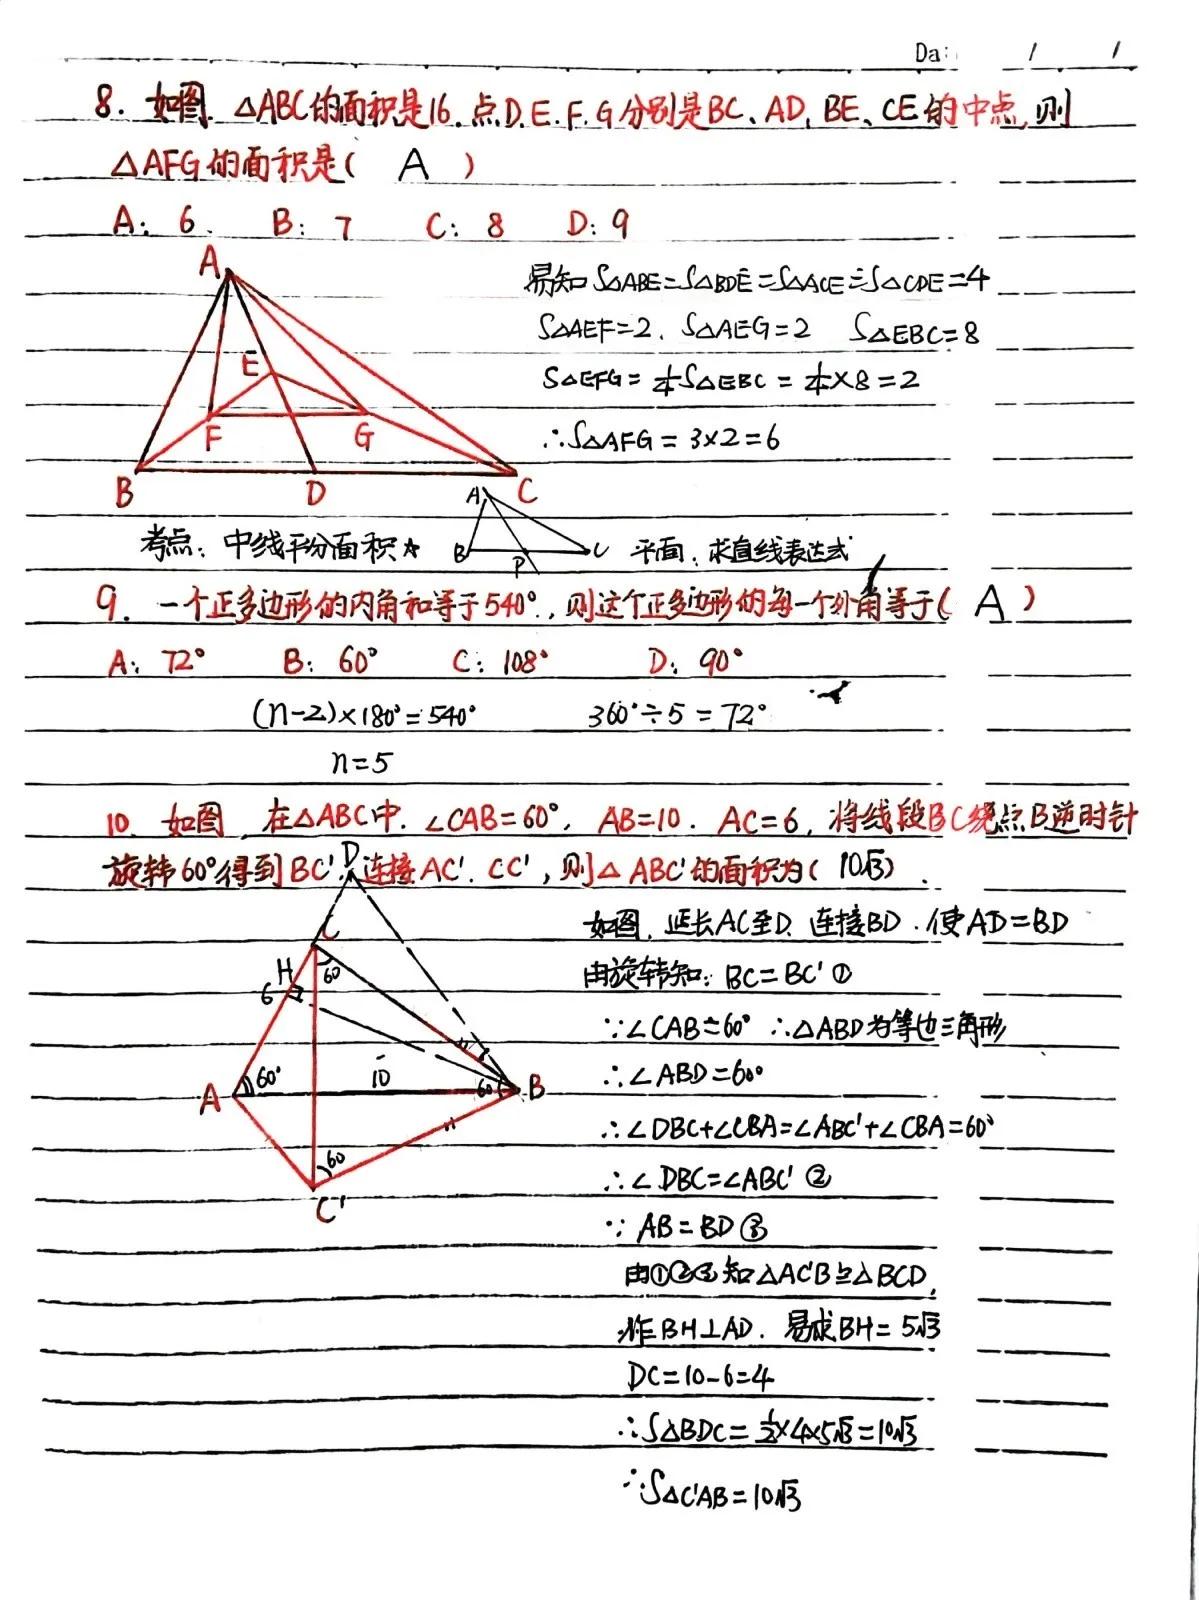 Da: / /
8. 如图, △ABC的面积是16.点D.E.F.G分别是BC、AD, BE、CE的中点,则
△AFG的面积是( A )
A: 6. B: 7 C: 8 D: 9
易知 S△ABE=S△BDE=S△ACE=S△CDE=4
S△AEF=2. S△AEG=2 S△EBC=8
S△EFG=1/4S△EBC=1/4×8=2
∴S△AFG=3×2=6
A
E
F
G
B
D
C
考点: 中线平分面积☆
A
B
P
C
平面: 求直线表达式
9. 一个正多边形的内角和等于540°.,则这个正多边形的每一个外角等于( A )
A: 72° B: 60° C: 108° D: 90°
(n-2)×180°=540° 360°÷5=72°
n=5
10. 如图, 在△ABC中. ∠CAB=60°, AB=10. AC=6, 将线段BC绕点B逆时针
旋转60°得到BC'.连接AC'. CC',则△ABC'的面积为( 10√3 ).
D
C
60
H
6
A
60°
10
60
B
60
C'
如图, 延长AC至D. 连接BD.使AD=BD
由旋转知: BC=BC'①
∵∠CAB=60° ∴△ABD为等边三角形
∴∠ABD=60°
∴∠DBC+∠CBA=∠ABC'+∠CBA=60°
∴∠DBC=∠ABC' ②
∵AB=BD③
由①②③知△AC'B≌△BCD,
作BH⊥AD. 易求BH=5√3
DC=10-6=4
∴S△BDC=1/2×4×5√3=10√3
∴S△C'AB=10√3